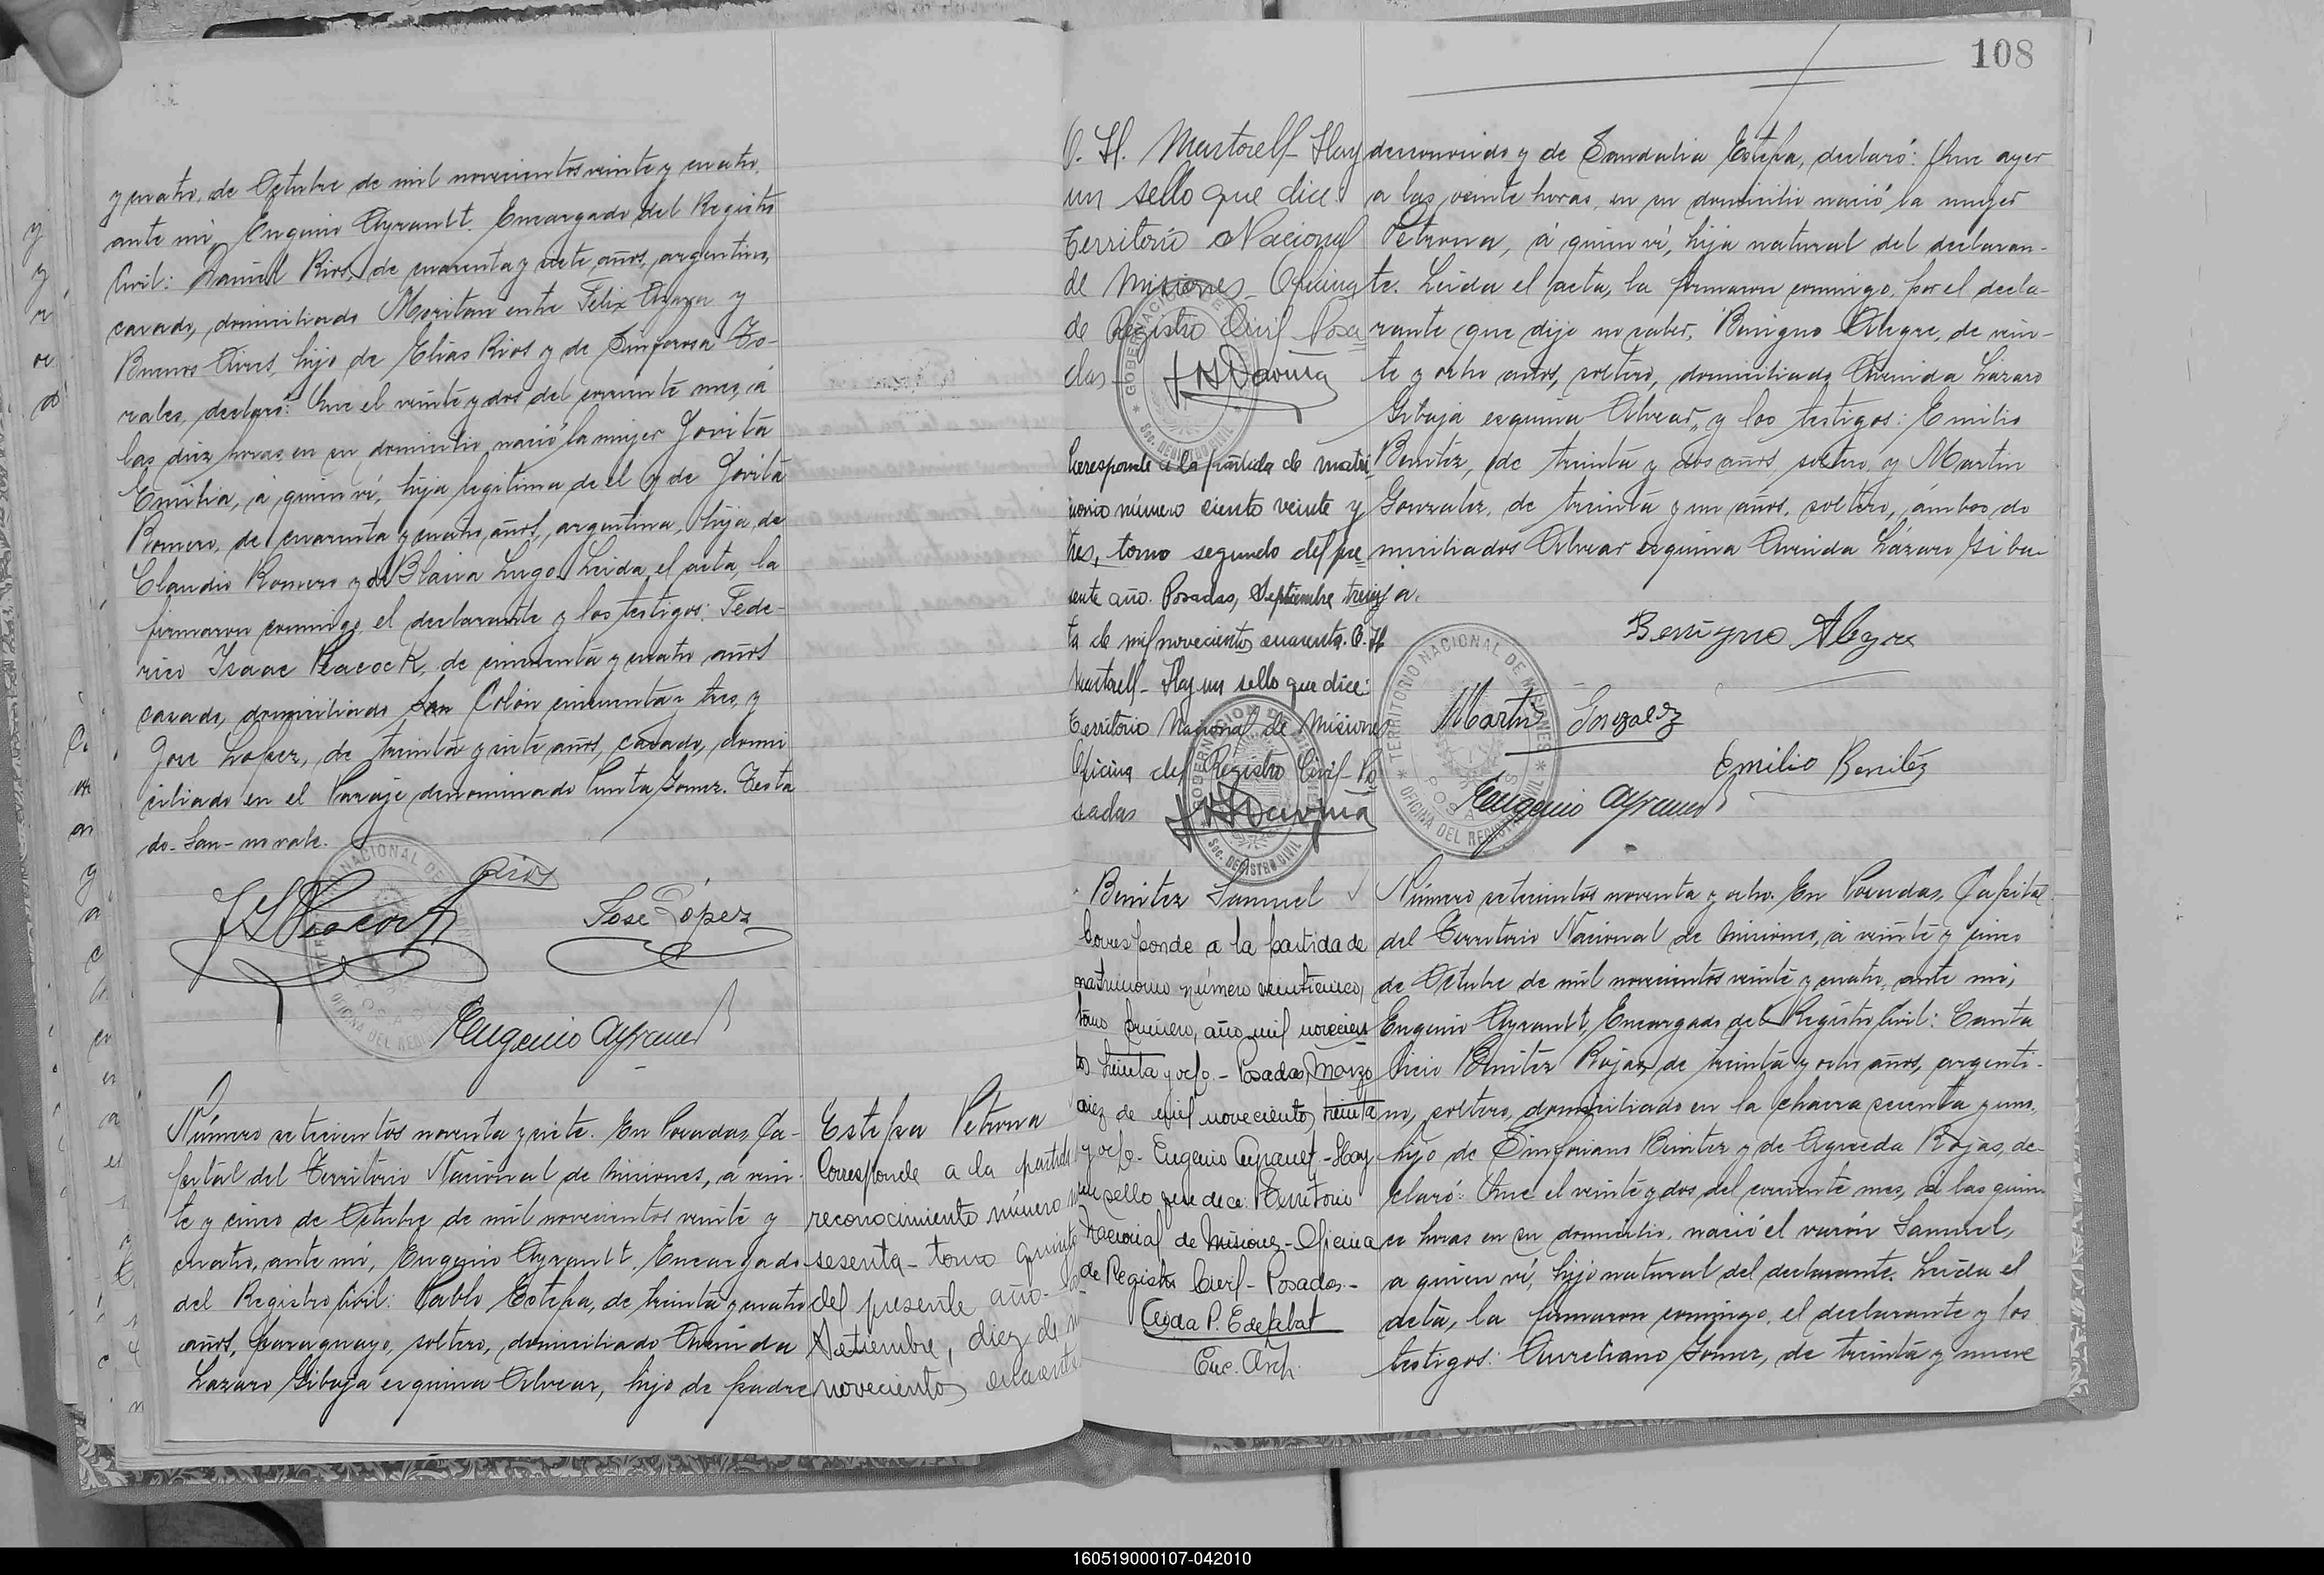 y cuatro, de Octubre de mil novecientos veinte y cuatro,
ante mí, Eugenio Ayrault, Encargado del Registro
Civil: Daniel Rios, de cuarenta y siete años, argentino,
casado, domiciliado Moritan entre Felix Azara y
Buenos Aires, hijo de Elias Rios y de Sinforosa To-
rales, declaró: Que el veinte y dos del corriente mes, á
las diez horas, en su domicilio nació la mujer Jovita
Emilia, á quien ví, hija legitima de el y de Jovita
Romero, de cuarenta y cuatro años, argentina, hija de
Claudio Romero y de Blasia Lugo. Leida el acta, la
firmaron conmigo, el declarante y los testigos: Fede-
rico Isaac Peacock, de cincuenta y cuatro años
casado, domiciliado San Colón cincuenta y tres, y
José Lopez, de treinta y siete años, casado, domi
ciliado en el Paraje denominado Punta Gomez. Testa
do-San-no vale.
Rios
José López
Eugenio Ayrault
Número setecientos noventa y siete. En Posadas, Ca-
pital del Territorio Nacional de Misiones, á vein-
te y cinco de Octubre de mil novecientos veinte y
cuatro, ante mí, Eugenio Ayrault, Encargado
del Registro Civil: Pablo Estepa, de treinta y cuatro
años, paraguayo, soltero, domiciliado Avenida
Lazaro Gibaja esquina Alvear, hijo de padre
Estepa Petrona
Corresponde a la partida
reconocimiento número
sesenta - tomo quinto
del presente año -
Setiembre, diez de
novecientos cuarenta
108
O. H. Martorell- Hay
un sello que dice:
Territorio Nacional
de Misiones- Oficina
de Registro Civil Posa
das-
desconocido y de Sandalia Estepa, declaró: Que ayer
a las veinte horas, en su domicilio nació la mujer
Petrona, á quien ví, hija natural del declaran-
te. Leida el acta, la firmaron conmigo, por el decla-
rante que dijo no saber, Benigno Alegre, de vein-
te y ocho años, soltero, domiciliado Avenida Lázaro
Gibaja esquina Alvear, y los testigos: Emilio
Benitez, de treinta y dos años, soltero, y Martin
Gonzalez, de treinta y un años, soltero, ámbos do
miciliados Alvear esquina Avenida Lázaro Giba-
ja.
Corresponde a la partida de matri
monio número ciento veinte y
tres, tomo segundo del pre
sente año. Posadas, Septiembre trein
ta de mil novecientos cuarenta. O. H
Martorell- Hay un sello que dice:
Territorio Nacional de Misiones
Oficina del Registro Civil- Po
sadas
Benigno Alegre
Martin Gonzalez
Emilio Benitez
Eugenio Ayrault
TERRITORIO NACIONAL DE MISIONES
OFICINA DEL REGISTRO CIVIL
POSADAS
Benitez Samuel
Corresponde a la partida de
matrimonio número veinticinco,
tomo primero, año mil novecien
tos treinta y ocho.- Posadas, Marzo
diez de mil novecientos treinta
y ocho. Eugenio Ayrault -Hay
un sello que dice: Territorio
Nacional de Misiones- Oficina
de Registro Civil- Posadas-
Enc. Arch.
Número setecientos noventa y ocho. En Posadas, Capital
del Territorio Nacional de Misiones, á veinte y cinco
de Octubre de mil novecientos veinte y cuatro, ante mí,
Eugenio Ayrault, Encargado del Registro Civil: Canta
licio Benitez Rojas, de treinta y ocho años, argenti-
no, soltero, domiciliado en la chacra sesenta y uno,
hijo de Sinforiano Benitez y de Agueda Rojas, de-
claró: Que el veinte y dos del corriente mes, á las quin-
ce horas en su domicilio, nació el varón Samuel,
a quien ví, hijo natural del declarante. Leída el
acta, la firmaron conmigo, el declarante y los
testigos: Aureliano Gomez, de treinta y nueve
160519000107-042010